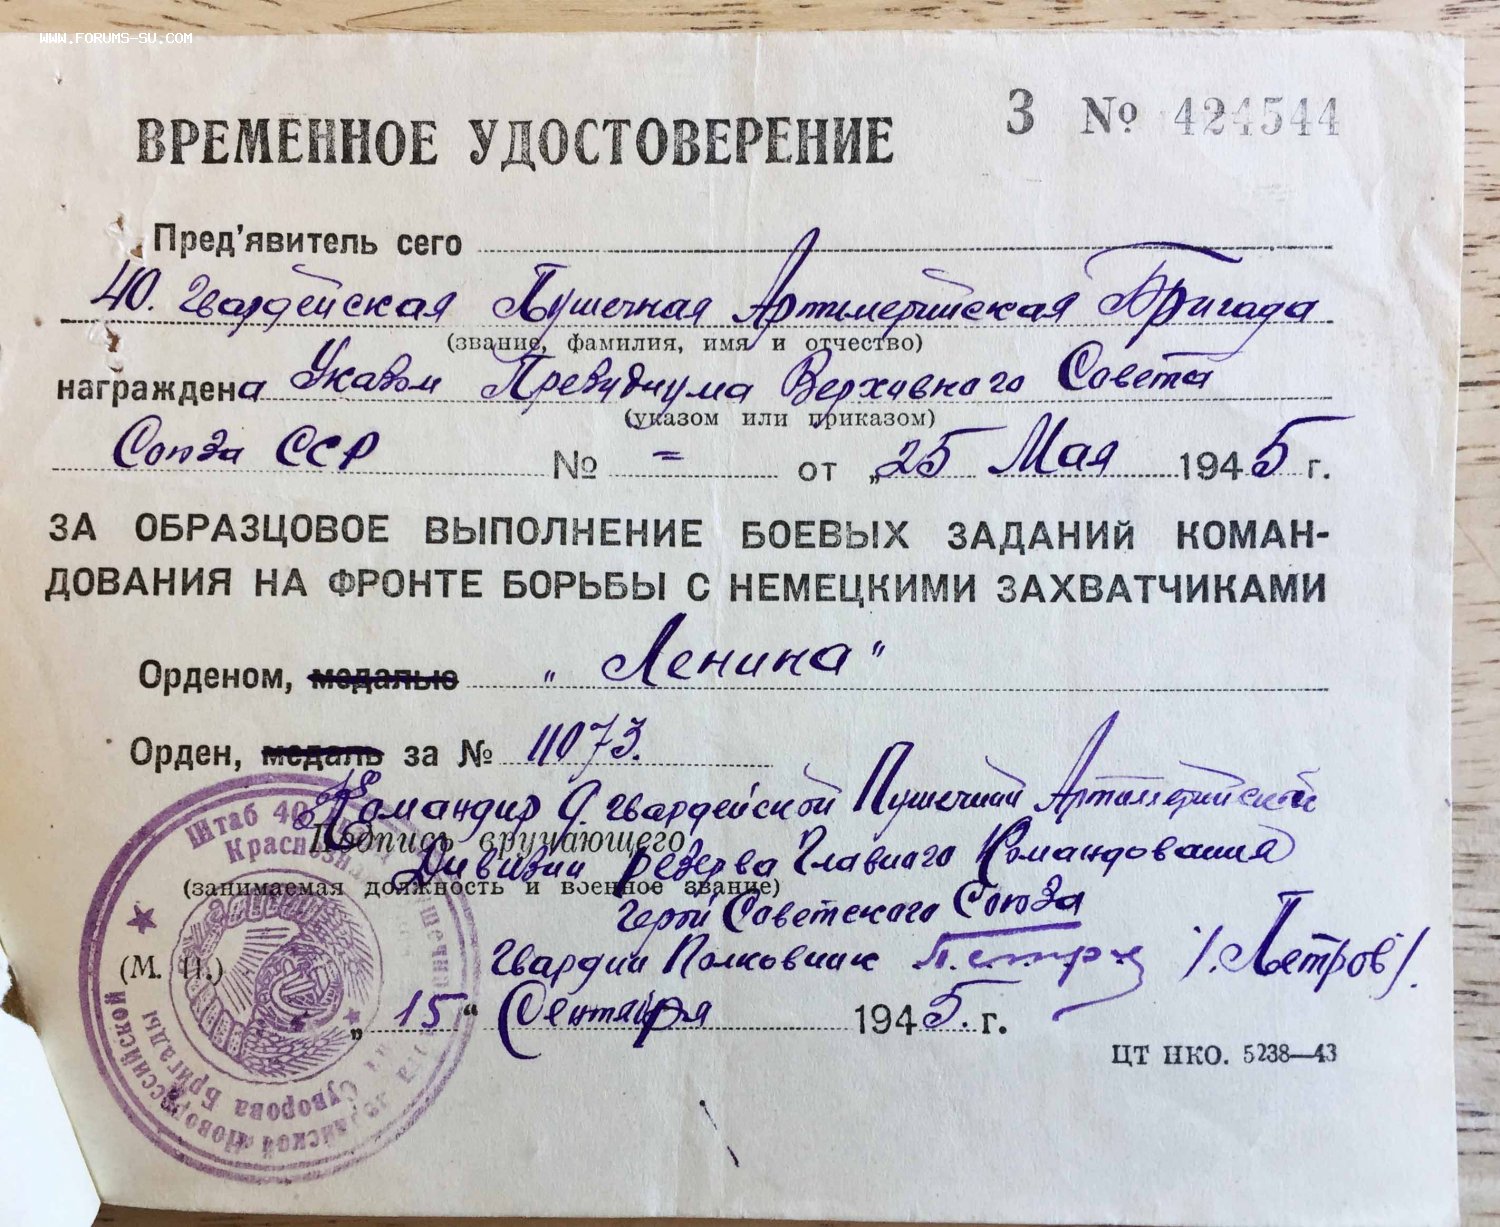 WWW.FORUMS-SU.COM
З № 424544
ВРЕМЕННОЕ УДОСТОВЕРЕНИЕ
Пред'явитель сего
40. Гвардейская Пушечная Артиллерийская Бригада
(звание, фамилия, имя и отчество)
награждена Указом Президиума Верховного Совета
(указом или приказом)
Союза ССР № = от „25 Мая 1945 г.
ЗА ОБРАЗЦОВОЕ ВЫПОЛНЕНИЕ БОЕВЫХ ЗАДАНИЙ КОМАН-
ДОВАНИЯ НА ФРОНТЕ БОРЬБЫ С НЕМЕЦКИМИ ЗАХВАТЧИКАМИ
Орденом, медалью „Ленина"
Орден, медаль за № 11073.
Командир 9. Гвардейской Пушечной Артиллерийской
Подпись вручающего
Дивизии Резерва Главного Командования
(занимаемая должность и военное звание)
Герой Советского Союза
Гвардии Полковник /.Петров/.
(М. П.)
„15" Сентября 1945. г.
ЦТ НКО. 5238—43
Штаб 40
Краснозн
Суворова Бригады